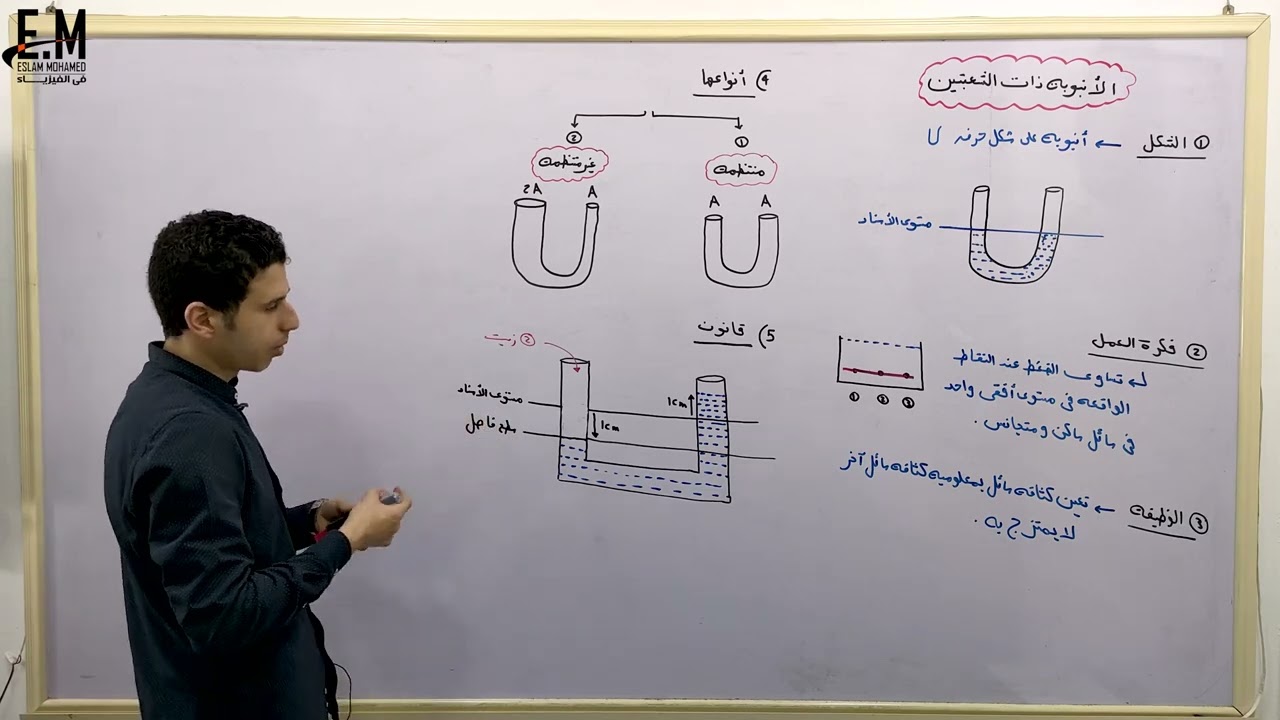 E.M
ESLAM MOHAMED
في الفيزياء
الأنبوبة ذات الشعبتين
① الشكل ← أنبوبة على شكل حرف U
مستوى الأسناد
② فكرة العمل
↳ تساوى الضغط عند النقاط
الواقعة فى مستوى أفقى واحد
فى سائل ساكن ومتجانس .
① ② ③
③ الوظيفة ← تعين كثافة سائل بمعلومية كثافة سائل آخر
لا يمتزج به .
4) أنواعها
① منتظمة
A A
② غير منتظمة
2A A
5) قانون
② زيت
مستوى الأسناد
سطح فاصل
1cm
1cm